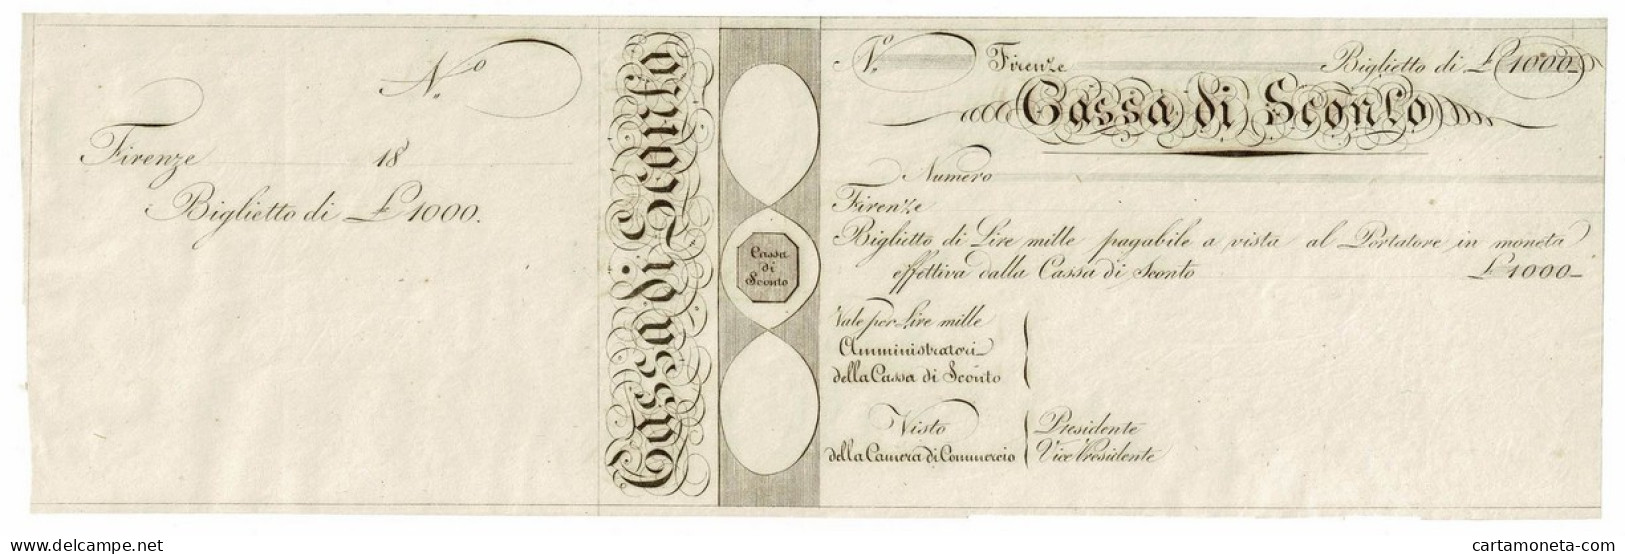 N.o
Firenze 18
Biglietto di £ 1000.
Cassa di Sconto
Cassa
di
Sconto
N.o Firenze Biglietto di £ 1000
Cassa di Sconto
Numero
Firenze
Biglietto di Lire mille pagabile a vista al Portatore in moneta
effettiva dalla Cassa di Sconto £ 1000
Vale per Lire mille
Amministratori
della Cassa di Sconto
Visto
della Camera di Commercio
Presidente
Vice Presidente
delcampe.net
cartamoneta-com